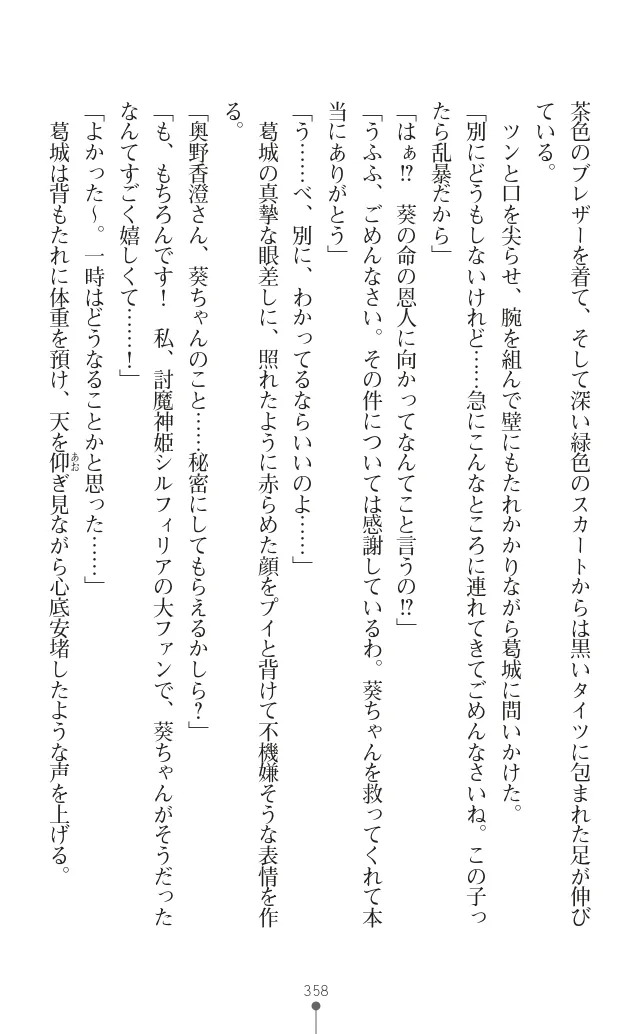 茶色のブレザーを着て、そして深い緑色のスカートからは黒いタイツに包まれた足が伸び
ている。
　ツンと口を尖らせ、腕を組んで壁にもたれかかりながら葛城に問いかけた。
「別にどうもしないけれど……急にこんなところに連れてきてごめんなさいね。この子っ
たら乱暴だから」
「はぁ⁉　葵の命の恩人に向かってなんてこと言うの⁉」
「うふふ、ごめんなさい。その件については感謝しているわ。葵ちゃんを救ってくれて本
当にありがとう」
「う……べ、別に、わかってるならいいのよ……」
　葛城の真摯な眼差しに、照れたように赤らめた顔をプイと背けて不機嫌そうな表情を作
る。
「奥野香澄さん、葵ちゃんのこと……秘密にしてもらえるかしら？」
「も、もちろんです！　私、討魔神姫シルフィリアの大ファンで、葵ちゃんがそうだった
なんてすごく嬉しくて……！」
「よかった～。一時はどうなることかと思った……」
　葛城は背もたれに体重を預け、天を仰あおぎ見ながら心底安堵したような声を上げる。
358